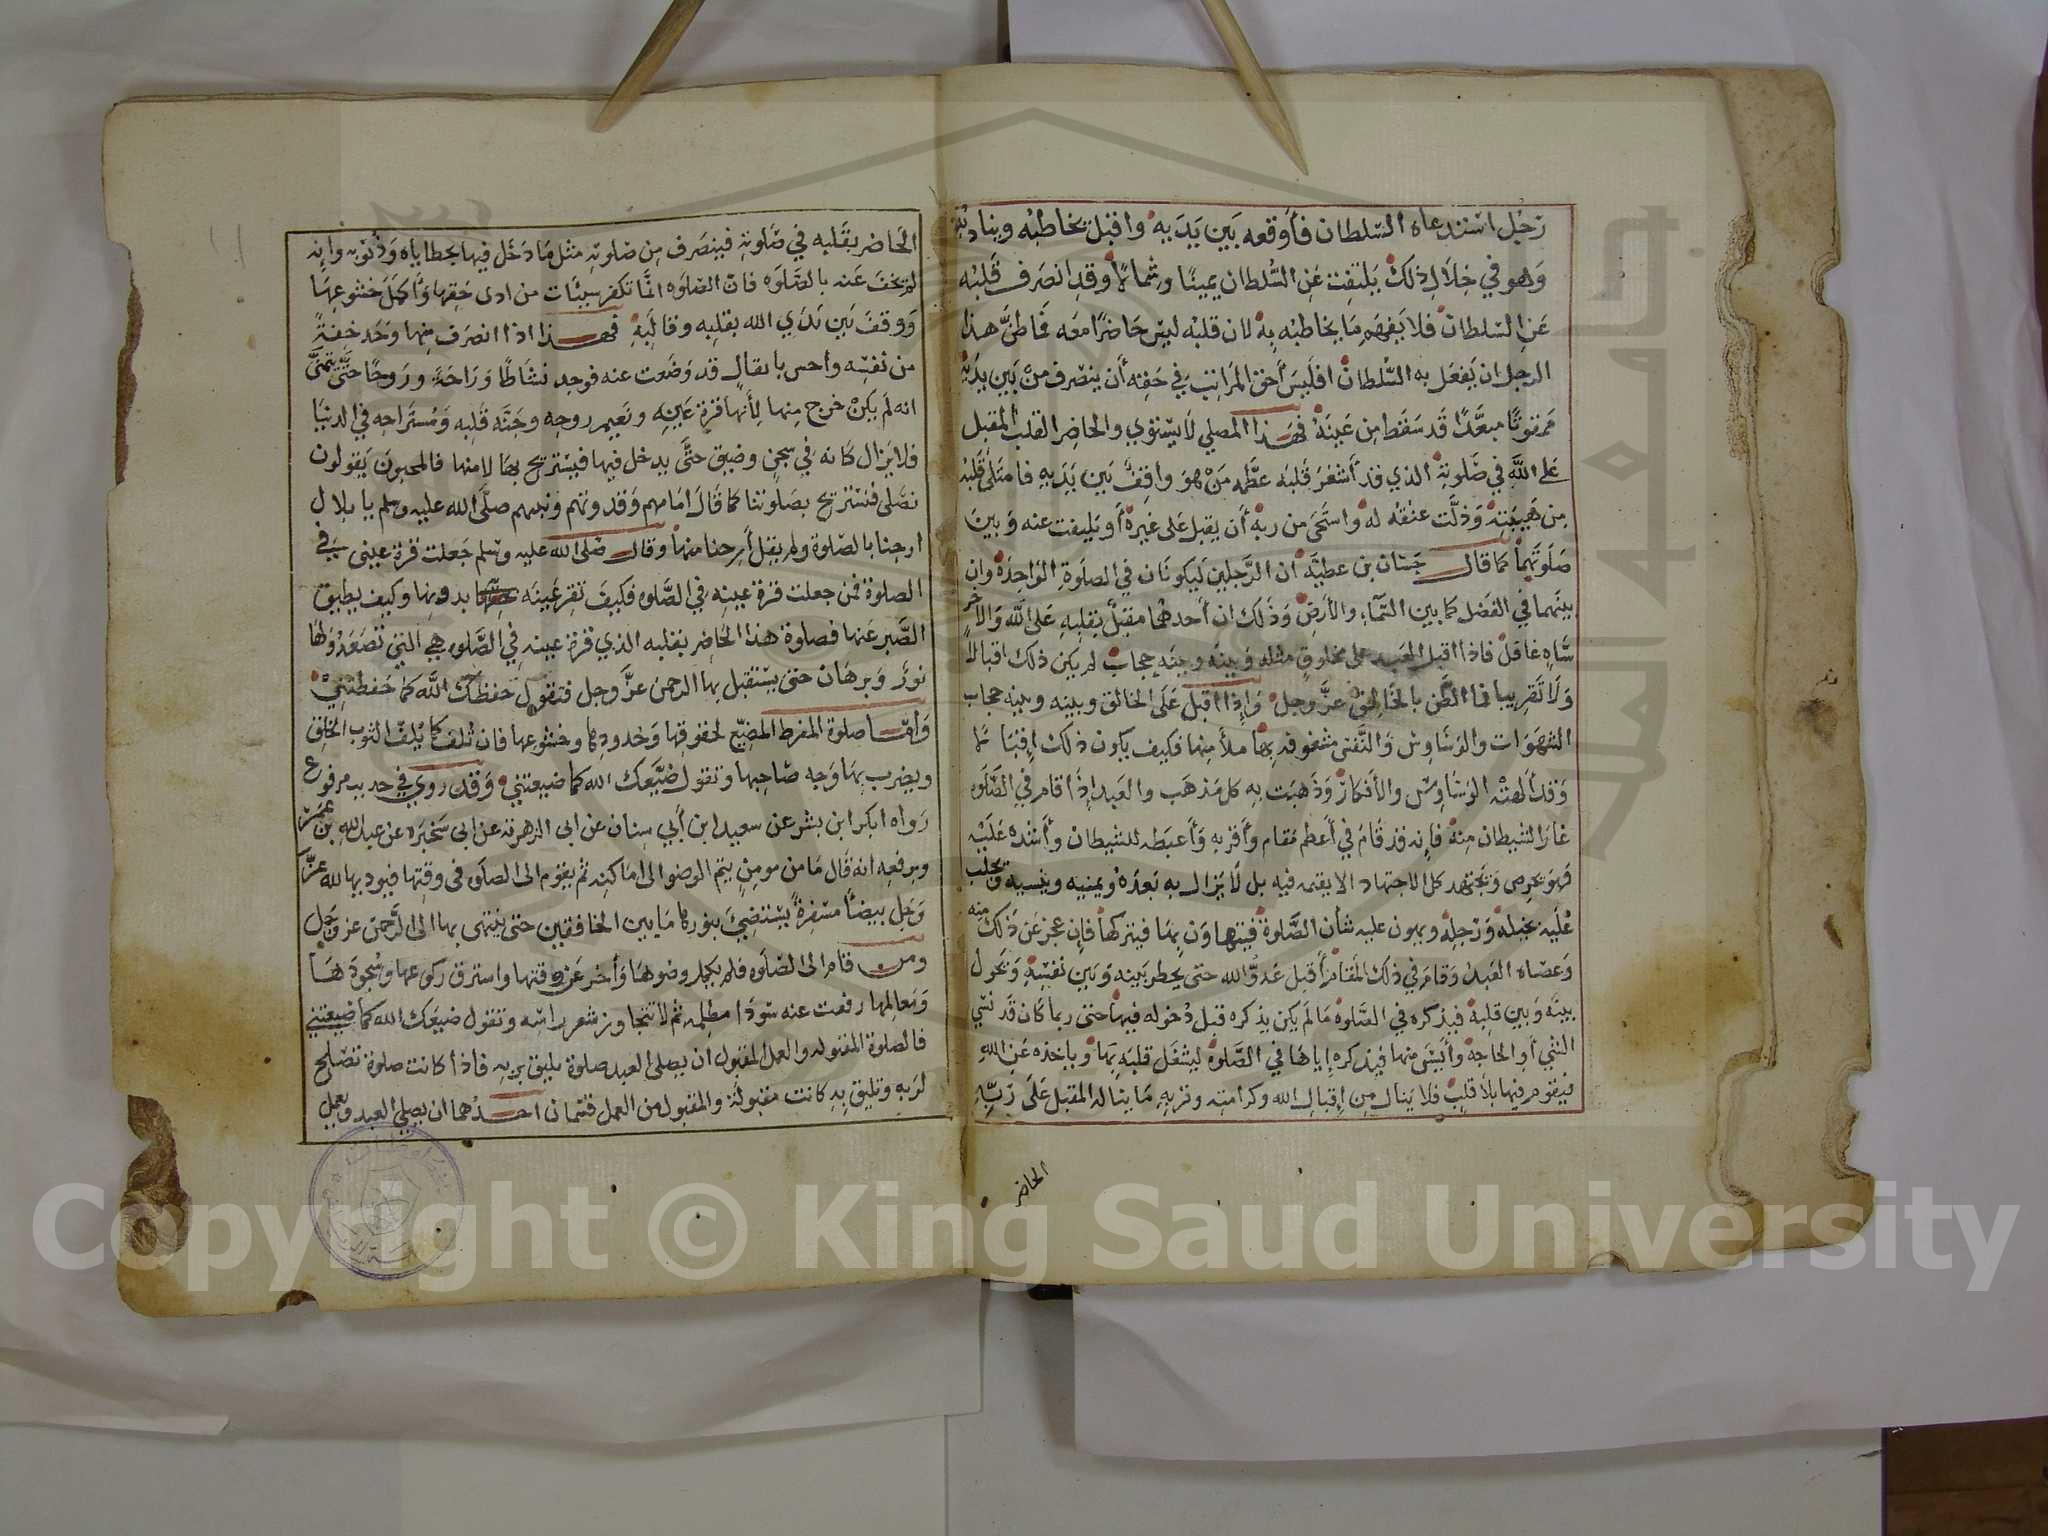 رجل استدعاه السلطان فأوقعه بين يديه واقبل يخاطبه ويناديه
وهو في خلال ذلك يلتفت عن السلطان يمينا وشمالا وقد انصرف قلبه
عن السلطان فلا يفهم ما يخاطبه به لان قلبه ليس حاضرا معه فما ظن هذا
الرجل ان يفعل به السلطان افليس أحق المراتب في حقه أن ينصرف من بين يديه
ممقوتا مبعدا قد سقط من عينه فهذا المصلي لا يستوي والحاضر القلب المقبل
على الله في صلوته الذي قد أشعر قلبه عظمة من هو واقف بين يديه فامتلى قلبه
من هيبته وذلت عنقه له واستحى من ربه أن يقبل على غيره أو يلتفت عنه وبين
صلوتهما كما قال حسان بن عطية ان الرجلين ليكونان في الصلوة الواحده وان
بينهما في الفضل كما بين السمآء والأرض وذلك ان أحدهما مقبل بقلبه على الله والآخر
ساه غافل فاذا اقبل العبد على مخلوق مثله وبينه وبينه حجاب لم يكن ذلك اقبالا
ولا تقريبا فما الظن بالخالق عز وجل وإذا اقبل على الخالق وبينه وبينه حجاب
الشهوات والوساوس والنفس مشغوفه بها ملأ منها فكيف يكون ذلك إقبالا
وقد ألهته الوساوس والأفكار وذهبت به كل مذهب والعبد إذا قام في الصلوه
غار الشيطان منه فإنه قد قام في أعظم مقام وأقربه وأغيظه للشيطان وأشده عليه
فهو يحرص ويجتهد كل الاجتهاد الا يقيمه فيه بل لا يزال به يعده ويمنيه وينسيه ويجلب
عليه بخيله ورجله ويهون عليه شأن الصلوة فيتهاون بها فيتركها فإن عجز عن ذلك منه
وعصاه العبد وقام في ذلك المقام أقبل عدو الله حتى يخطر بينه وبين نفسه ويحول
بينه وبين قلبه فيذكره في الصلوة مالم يكن يذكره قبل دخوله فيها حتى ربما كان قد نسي
الشي أو الحاجة وأيس منها فيذكره إياها في الصلوة ليشغل قلبه بها وياخذه عن الله
فيقوم فيها بلا قلب فلا ينال من إقبال الله وكرامته وقربه ما يناله المقبل على ربه
الحاضر
الحاضر بقلبه في صلوته فينصرف من صلوته مثل ما دخل فيها بخطاياه وذنوبه وانه
لم يخف عنه بالصلوه فان الصلوه انما تكفر سيئات من ادى حقها وأكمل خشوعها
ووقف بين يدي الله بقلبه وقالبه فهذا اذا انصرف منها وجد خفة
من نفسه وأحس باثقال قد وضعت عنه فوجد نشاطا وراحة وروحا حتى يتمنى
انه لم يكن خرج منها لأنها قرة عينه ونعيم روحه وجنة قلبه ومستراحه في الدنيا
فلا يزال كانه في سجن وضيق حتى يدخل فيها فيستريح بها لا منها فالمحبون يقولون
نصلي فنستريح بصلوتنا كما قال امامهم وقدوتهم ونبيهم صلى الله عليه وسلم يا بلال
ارحنا بالصلوة ولم يقل أرحنا منها وقال صلى الله عليه وسلم جعلت قرة عيني في
الصلوة فمن جعلت قرة عينه في الصلوه فكيف تقر عينه بدونها وكيف يطيق
الصبر عنها فصلوة هذا الحاضر بقلبه الذي قرة عينه في الصلوه هي التي تصعد ولها
نور وبرهان حتى يستقبل بها الرحمن عز وجل فتقول حفظك الله كما حفظتني
وامّا صلوة المفرط المضيّع لحقوقها وحدودها وخشوعها فان تلف كما يلف الثوب الخلق
ويضرب بها وجه صاحبها وتقول ضيّعك الله كما ضيعتني وقد روي في حديث مرفوع
رواه ابكر ابن بشر عن سعيد ابن أبي سنان عن ابي الزهرية عن ابي شجره عن عبدالله بن عمر
يرفعه انه قال ما من مومن يتم الوضوا الى اماكنه ثم يقوم الى الصلوه في وقتها فيوديها لله عز
وجل بيضأ مسفرة يستضيئ بنورها ما بين الخافقين حتى ينتهى بها الى الرحمن عز وجل
ومن قام الى الصلوه فلم يكمل وضوها وأخر عن وقتها واسترق ركوعها وسجودها
ومعالمها رفعت عنه سودا مظلمه ثم لا تتجاوز شعر راسه وتقول ضيعك الله كما ضيعتني
فالصلوة المقبوله والعمل المقبول ان يصلى العبد صلوة تليق بربه فاذا كانت صلوة تصلح
لربه وتليق به كانت مقبولة والمقبول من العمل قسمان احدهما ان يصلي العبد ويعمل
Copyright © King Saud University